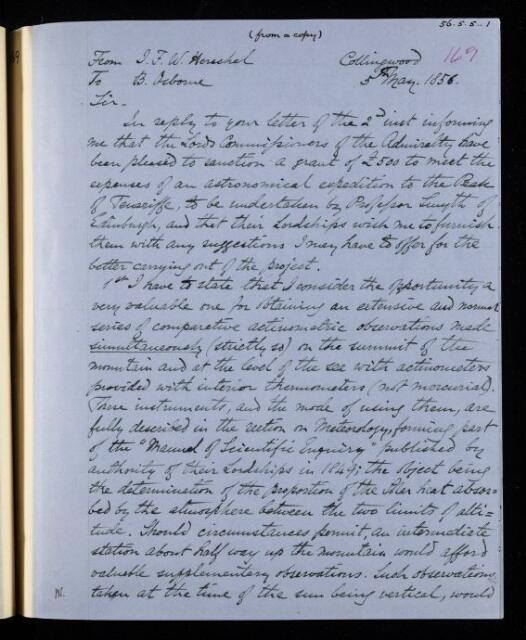 56.5.5..1
(from a copy)
169
From J.F.W. Herschel Collingwood
To B. Osborne 5th May. 1856.
Sir -
In reply to your letter of the 2d inst informing
me that the Lords Commissioners of the Admiralty have
been pleased to sanction a grant of £500 to meet the
expenses of an astronomical expedition to the Peak
of Teneriffe, to be undertaken by Professor Smyth of
Edinburgh, and that their Lordships wish me to furnish
them with any suggestions I may have to offer for the
better carrying out of the project.
1st I have to state that I consider the opportunity a
very valuable one for obtaining an extensive and normal
series of comparative actinometric observations made
simultaneously (strictly so) on the summit of the
mountain and at the level of the sea with actinometers
provided with interior thermometers (not mercurial).
These instruments, and the mode of using them, are
fully described in the section on Meteorology, forming part
of the "Manual of Scientific Enquiry" published by
authority of their Lordships in 1849; the object being
the determination of the proportion of the solar heat absor-
bed by the atmosphere between the two limits of alti-
tude. Should circumstances permit, an intermediate
station about half way up the mountain would afford
valuable supplementary observations. Such observations
taken at the time of the sun being vertical, would